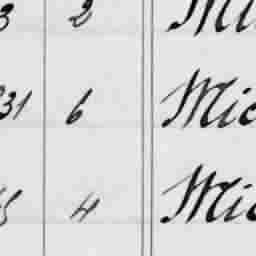 3 2 Mi
31 6 Mic
5 4 Mic